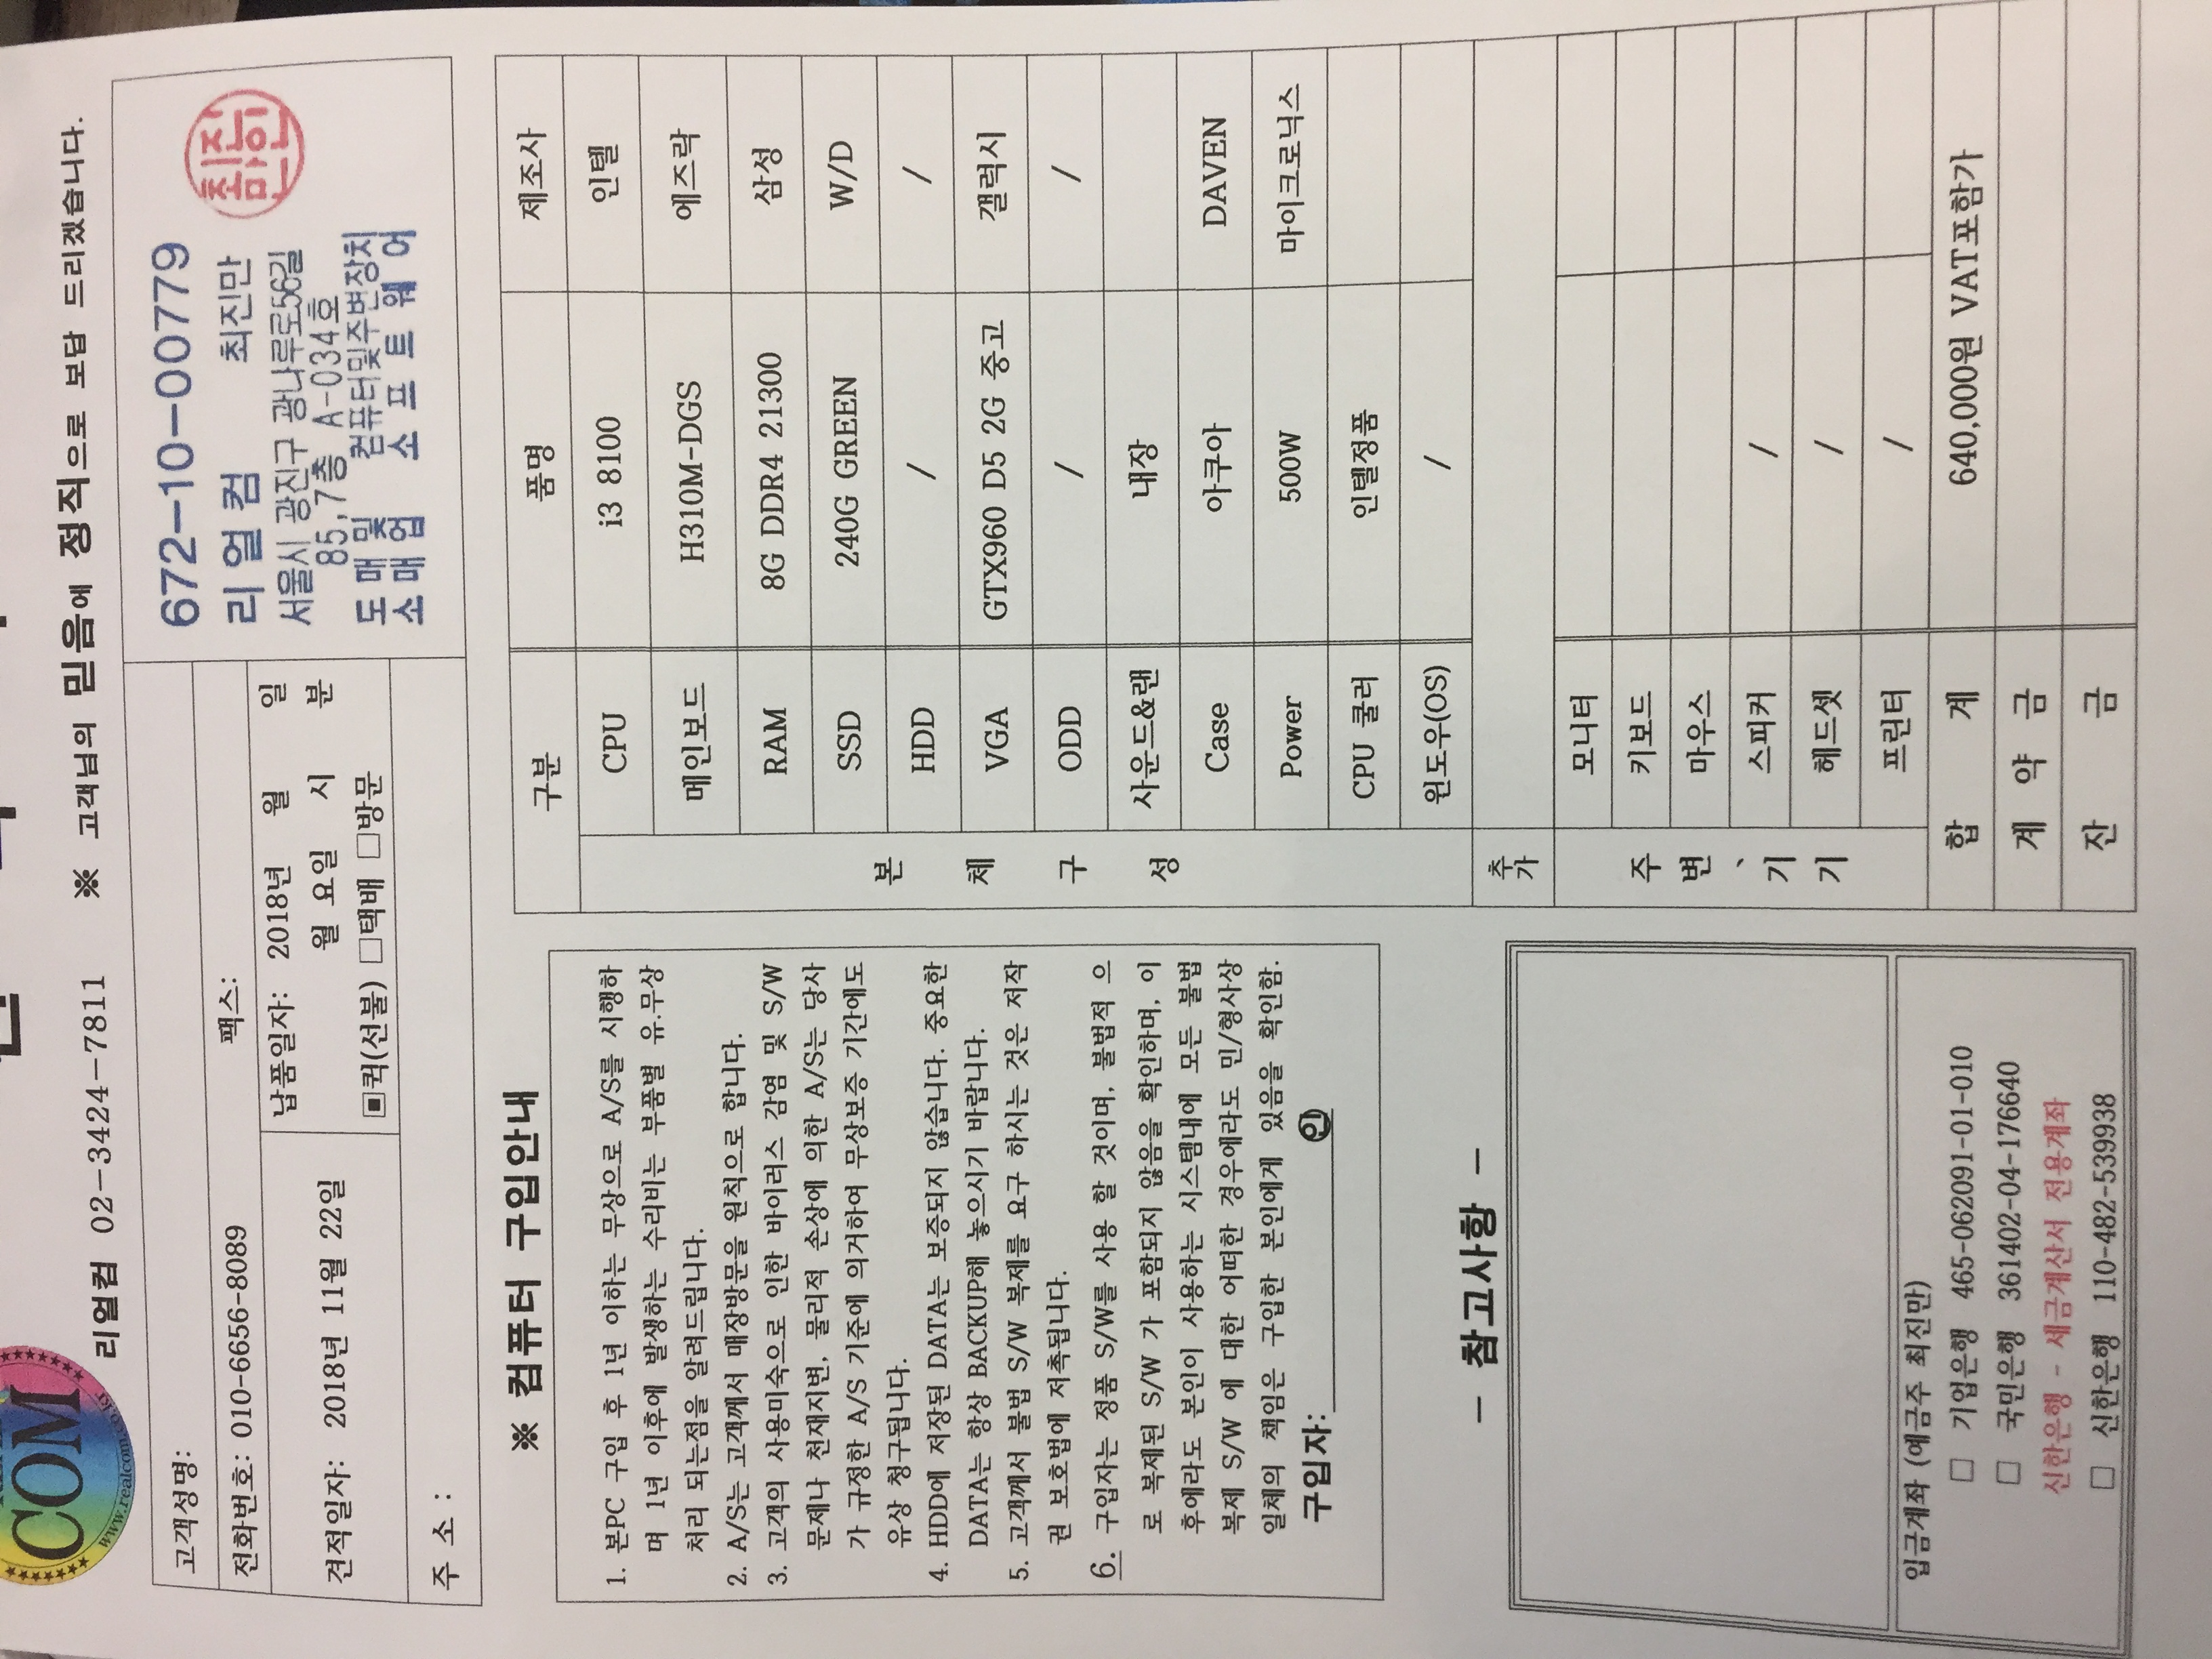 COM
www.realcom.co.kr
리얼컴 02-3424-7811 ※ 고객님의 믿음에 정직으로 보답 드리겠습니다.
고객성명:
전화번호: 010-6656-8089 팩스:
견적일자: 2018년 11월 22일
납품일자: 2018년 월 일
월 요일 시 분
▣퀵(선불) □택배 □방문
주 소 :
672-10-00779
리얼컴 최진만
서울시 광진구 광나루로56길
85,7층 A-034호
도매및 컴퓨터및주변장치
소매업 소프트웨어
※ 컴퓨터 구입안내
1. 본PC 구입 후 1년 이하는 무상으로 A/S를 시행하
며 1년 이후에 발생하는 수리비는 부품별 유.무상
처리 되는점을 알려드립니다.
2. A/S는 고객께서 매장방문을 원칙으로 합니다.
3. 고객의 사용미숙으로 인한 바이러스 감염 및 S/W
문제나 천재지변, 물리적 손상에 의한 A/S는 당사
가 규정한 A/S 기준에 의거하여 무상보증 기간에도
유상 청구됩니다.
4. HDD에 저장된 DATA는 보증되지 않습니다. 중요한
DATA는 항상 BACKUP해 놓으시기 바랍니다.
5. 고객께서 불법 S/W 복제를 요구 하시는 것은 저작
권 보호법에 저촉됩니다.
6. 구입자는 정품 S/W를 사용 할 것이며, 불법적 으
로 복제된 S/W 가 포함되지 않음을 확인하며, 이
후에라도 본인이 사용하는 시스템내에 모든 불법
복제 S/W 에 대한 어떠한 경우에라도 민/형사상
일체의 책임은 구입한 본인에게 있음을 확인함.
구입자: ㊞
- 참고사항 -
입금계좌 (예금주 최진만)
□ 기업은행 465-062091-01-010
□ 국민은행 361402-04-176640
신한은행 - 세금계산서 전용계좌
□ 신한은행 110-482-539938
구분 품명 제조사
본 체 구 성
CPU i3 8100 인텔
메인보드 H310M-DGS 에즈락
RAM 8G DDR4 21300 삼성
SSD 240G GREEN W/D
HDD / /
VGA GTX960 D5 2G 중고 갤럭시
ODD / /
사운드&랜 내장
Case 아쿠아 DAVEN
Power 500W 마이크로닉스
CPU 쿨러 인텔정품
윈도우(OS) /
추가
주 변 、 기 기
모니터
키보드
마우스
스피커 /
헤드셋 /
프린터 /
합 계 640,000원 VAT포함가
계 약 금
잔 금